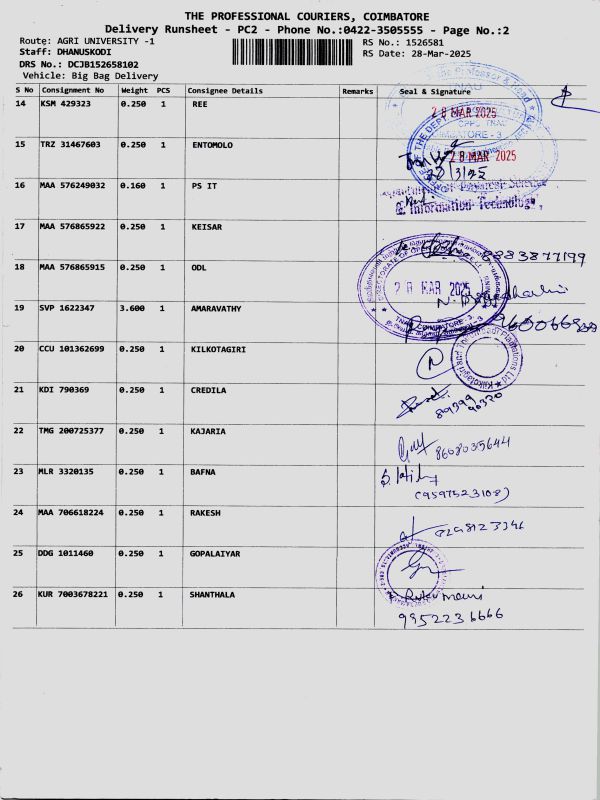 THE PROFESSIONAL COURIERS, COIMBATORE
Delivery Runsheet - PC2 - Phone No.:0422-3505555 - Page No.:2
Route: AGRI UNIVERSITY -1
RS No.: 1526581
Staff: DHANUSKODI
RS Date: 28-Mar-2025
DRS No.: DCJB152658102
Vehicle: Big Bag Delivery
S No Consignment No Weight PCS Consignee Details Remarks Seal & Signature
14 KSM 429323 0.250 1 REE
28 MAR 2025
15 TRZ 31467603 0.250 1 ENTOMOLO
28 MAR 2025
16 MAA 576249032 0.160 1 PS IT
& Information Technology,
17 MAA 576865922 0.250 1 KEISAR
8883877199
18 MAA 576865915 0.250 1 ODL
28 MAR 2025
19 SVP 1622347 3.600 1 AMARAVATHY
TNAU, COIMBATORE - 3.
20 CCU 101362699 0.250 1 KILKOTAGIRI
21 KDI 790369 0.250 1 CREDILA
89399
90320
22 TMG 200725377 0.250 1 KAJARIA
8608035644
23 MLR 3320135 0.250 1 BAFNA
(9597523108)
24 MAA 706618224 0.250 1 RAKESH
25 DDG 1011460 0.250 1 GOPALAIYAR
26 KUR 7003678221 0.250 1 SHANTHALA
9952236666